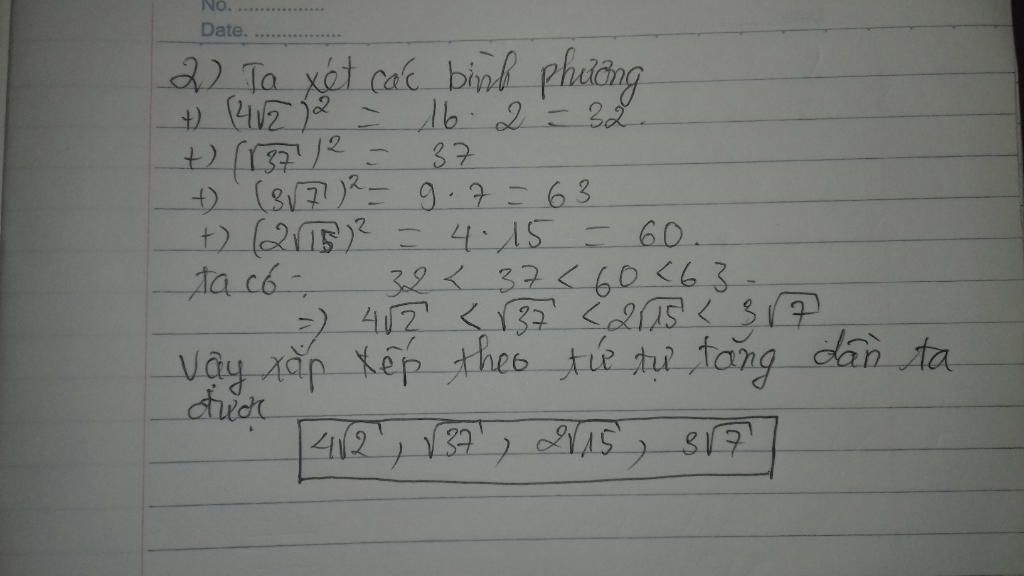 No. ................
Date. ................
2) Ta xét các bình phương
+) (4√2)² = 16 . 2 = 32.
+) (√37)² = 37
+) (3√7)² = 9 . 7 = 63
+) (2√15)² = 4 . 15 = 60.
ta có : 32 < 37 < 60 < 63 -
=) 4√2 < √37 < 2√15 < 3√7
Vậy xắp xếp theo tứ tự tăng dần ta
được
4√2 , √37 , 2√15 , 3√7